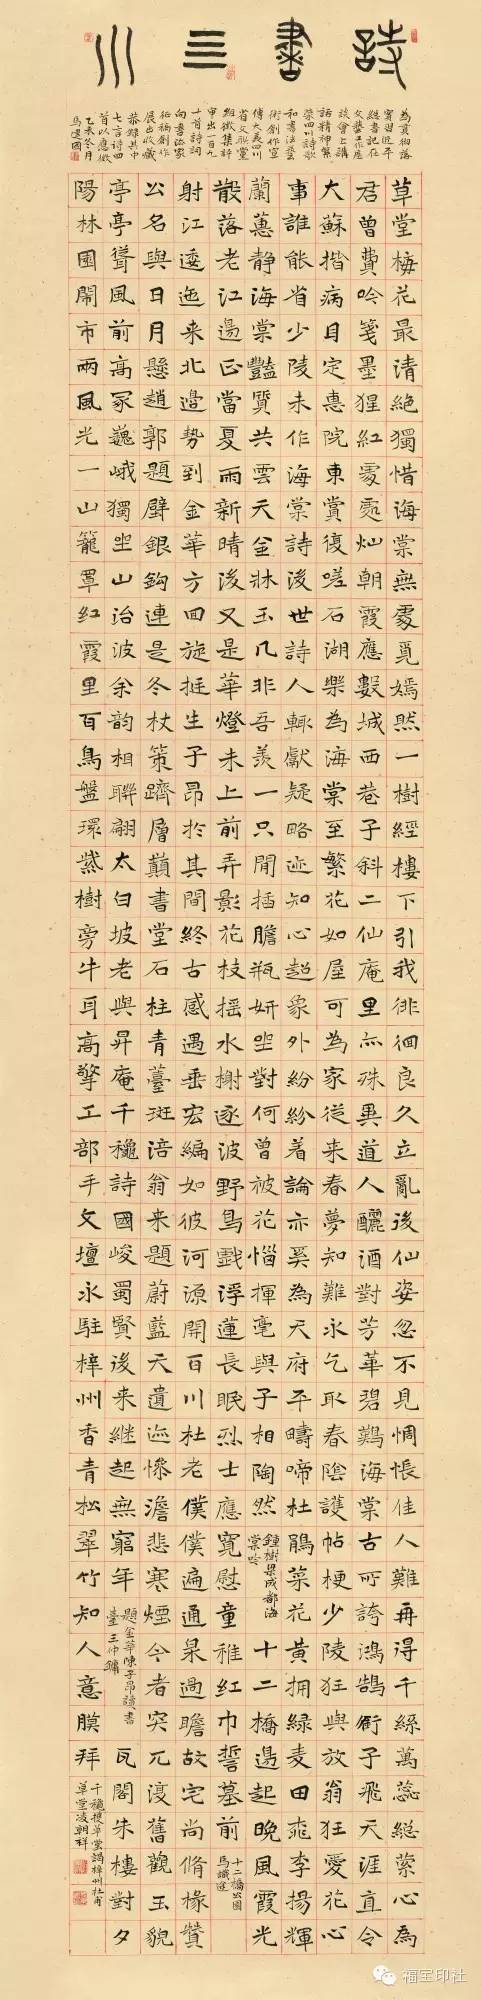 詩書三川
為貫徹落
實習近平
總書記在
文藝工作座
談會上講
話精神繁
榮四川詩歌
和書法藝
術創作宣
傳大美四川
省文聯黨
組徵集評
申出一百九
十首詩詞
向書法家
徵稿創作
展出收藏
恭錄其中
七言詩四
首以應徵
乙未冬月
馬建國
草堂梅花最清絕獨惜海棠無處覓嫣然一樹經樓下引我徘徊良久立亂後仙姿忽不見惆悵佳人難再得千絲萬蕊總縈心為
君曾費吟箋墨猩紅處處灿朝霞應數城西巷子斜二仙庵里亦殊異道人釃酒對芳華碧鷄海棠古所誇鴻鵠銜子飛天涯直令
大蘇揩病目定惠院東賞復嗟石湖樂為海棠至繁花如屋可為家從来春夢知難永乞取春陰護帖梗少陵狂與放翁狂愛花心
事誰能省少陵未作海棠詩後世詩人輒獻疑略迹知心超象外紛紛着論亦奚為天府平疇啼杜鵑菜花黃拥綠麦田桃李揚輝
蘭蕙静海棠豔質共雲天金牀玉几非吾羨一只閒插膽瓶妍坐對何曾被花惱揮毫與子相陶然
鍾樹梁成都海
棠吟
十二橋邊起晚風霞光
散落老江邊正當夏雨新晴後又是華燈未上前弄影花枝摇水榭逐波野鳥戲浮蓮長眠烈士應寬慰童稚红巾誓墓前
十二橋公園
馬識途
射江逶迤来北邊勢到金華方回旋挺生子昂於其間終古感遇垂宏編如彼河源開百川杜老僕僕遍通杲過瞻故宅尚脩椽贊
公名與日月懸趙郭題壁銀鈎連是冬杖策躋層巔書堂石柱青薹斑涪翁来題蔚藍天遺迹慘澹悲寒煙今者突兀復舊觀玉貌
亭亭聳風前高冢巍峨獨坐山治波余韵相聯翩太白坡老與昇庵千穐詩國峻蜀賢後来継起無窮年
題金華陳子昂讀書
臺王仲鏞
瓦閣朱樓對夕
陽林園鬧市兩風光一山籠罩红霞里百鳥盤環黛樹旁牛耳高擎工部手文壇永駐梓州香青松翠竹知人意膜拜
千穐搜草堂謁梓州杜甫
草堂凌朝祥
福宝印社